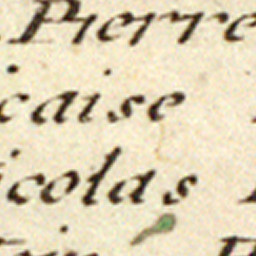 Pierre
icaise
icolas